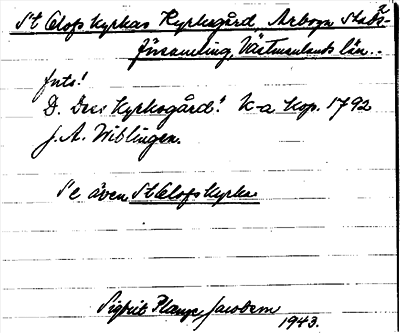 St Olofs Kyrkas Kyrkogård, Arboga Stads-
församling, Västmanlands län.
Inte!
D. Dess Kyrkogård! K-a Kop. 1792
J. A. Wiblingen.
Se även St Olofs Kyrka
Sigbrit Plange Jacobson
1943.